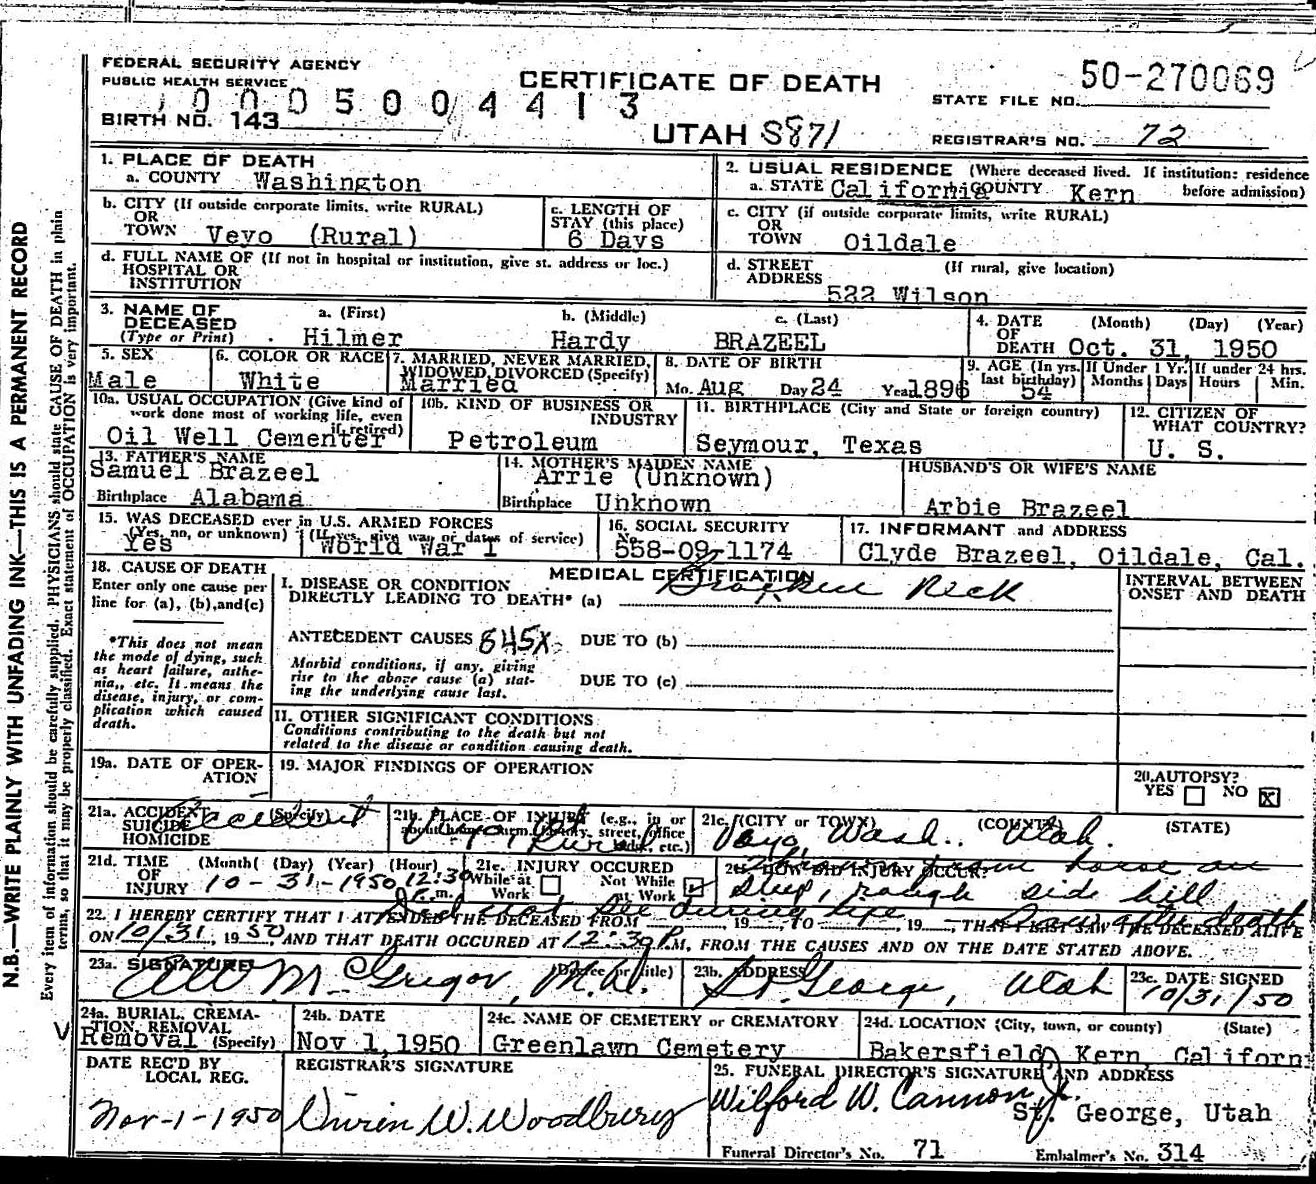 FEDERAL SECURITY AGENCY
PUBLIC HEALTH SERVICE
CERTIFICATE OF DEATH
50-270069
STATE FILE NO.
0005004413
BIRTH NO. 143
UTAH S871
REGISTRAR'S NO. 72
1. PLACE OF DEATH
a. COUNTY Washington
2. USUAL RESIDENCE (Where deceased lived. If institution: residence before admission)
a. STATE California COUNTY Kern
b. CITY (If outside corporate limits, write RURAL)
OR
TOWN Veyo (Rural)
c. LENGTH OF
STAY (this place)
6 Days
c. CITY (if outside corporate limits, write RURAL)
OR
TOWN Oildale
d. FULL NAME OF (If not in hospital or institution, give st. address or loc.)
HOSPITAL OR
INSTITUTION
d. STREET (If rural, give location)
ADDRESS
522 Wilson
3. NAME OF DECEASED
(Type or Print)
a. (First) b. (Middle) c. (Last)
Hilmer Hardy BRAZEEL
4. DATE (Month) (Day) (Year)
OF
DEATH Oct. 31, 1950
5. SEX
Male
6. COLOR OR RACE
White
7. MARRIED, NEVER MARRIED,
WIDOWED, DIVORCED (Specify)
Married
8. DATE OF BIRTH
Mo. Aug Day 24 Year 1896
9. AGE (In yrs. last birthday)
54
If Under 1 Yr. If under 24 hrs.
Months Days Hours Min.
10a. USUAL OCCUPATION (Give kind of
work done most of working life, even
if retired)
Oil Well Cementer
10b. KIND OF BUSINESS OR
INDUSTRY
Petroleum
11. BIRTHPLACE (City and State or foreign country)
Seymour, Texas
12. CITIZEN OF
WHAT COUNTRY?
U. S.
13. FATHER'S NAME
Samuel Brazeel
Birthplace Alabama
14. MOTHER'S MAIDEN NAME
Arrie (Unknown)
Birthplace Unknown
HUSBAND'S OR WIFE'S NAME
Arbie Brazeel
15. WAS DECEASED ever in U.S. ARMED FORCES
(Yes, no, or unknown) (If yes, give war or dates of service)
Yes World War I
16. SOCIAL SECURITY
No.
558-09-1174
17. INFORMANT and ADDRESS
Clyde Brazeel, Oildale, Cal.
18. CAUSE OF DEATH
Enter only one cause per
line for (a), (b), and (c)
*This does not mean
the mode of dying, such
as heart failure, asthe-
nia, etc. It means the
disease, injury, or com-
plication which caused
death.
MEDICAL CERTIFICATION
I. DISEASE OR CONDITION
DIRECTLY LEADING TO DEATH* (a) Broken Neck
ANTECEDENT CAUSES 845X DUE TO (b)
Morbid conditions, if any, giving
rise to the above cause (a) stat-
ing the underlying cause last.
DUE TO (c)
II. OTHER SIGNIFICANT CONDITIONS
Conditions contributing to the death but not
related to the disease or condition causing death.
INTERVAL BETWEEN
ONSET AND DEATH
19a. DATE OF OPER-
ATION
19. MAJOR FINDINGS OF OPERATION
20. AUTOPSY?
YES NO X
21a. ACCIDENT (Specify)
SUICIDE
HOMICIDE
Accident
21b. PLACE OF INJURY (e.g., in or
about home, farm, factory, street, office
bldg., etc.)
21c. (CITY or TOWN) (COUNTY) (STATE)
Veyo, Wash.. Utah.
21d. TIME (Month) (Day) (Year) (Hour)
OF
INJURY 10-31-1950 12:30 P.m.
21e. INJURY OCCURED
While at Work Not While at Work
21f. HOW DID INJURY OCCUR?
Thrown from horse on
steep, rough side hill
Did not see during life Saw after death
22. I HEREBY CERTIFY THAT I ATTENDED THE DECEASED FROM , 19 , TO , 19 , THAT I LAST SAW THE DECEASED ALIVE
ON 10/31, 1950, AND THAT DEATH OCCURED AT 12:30 P.M., FROM THE CAUSES AND ON THE DATE STATED ABOVE.
23a. SIGNATURE (Degree or title)
McGregor, M.D.
23b. ADDRESS
St. George, Utah
23c. DATE SIGNED
10/31/50
24a. BURIAL, CREMA-
TION, REMOVAL
Removal (Specify)
24b. DATE
Nov 1, 1950
24c. NAME OF CEMETERY or CREMATORY
Greenlawn Cemetery
24d. LOCATION (City, town, or county) (State)
Bakersfield, Kern, Californ
DATE REC'D BY
LOCAL REG.
Nov-1-1950
REGISTRAR'S SIGNATURE
W. Woodbury
25. FUNERAL DIRECTOR'S SIGNATURE AND ADDRESS
Wilford W. Cannon Jr.
St. George, Utah
Funeral Director's No. 71 Embalmer's No. 314
N.B.—WRITE PLAINLY WITH UNFADING INK—THIS IS A PERMANENT RECORD
Every item of information should be carefully supplied. PHYSICIANS should state CAUSE OF DEATH in plain
terms, so that it may be properly classified. Exact statement of OCCUPATION is very important.